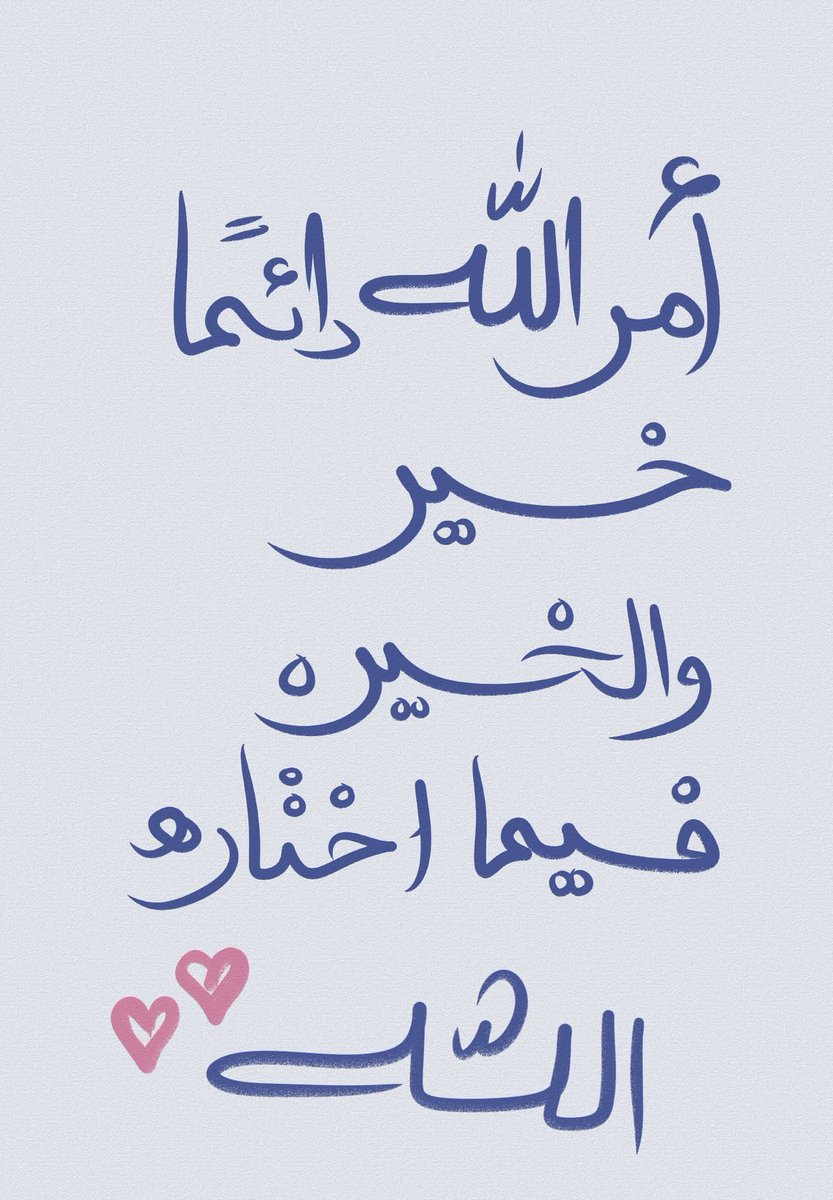 أمر الله دائمًا
خير
والخيره
فيما اختاره
الله